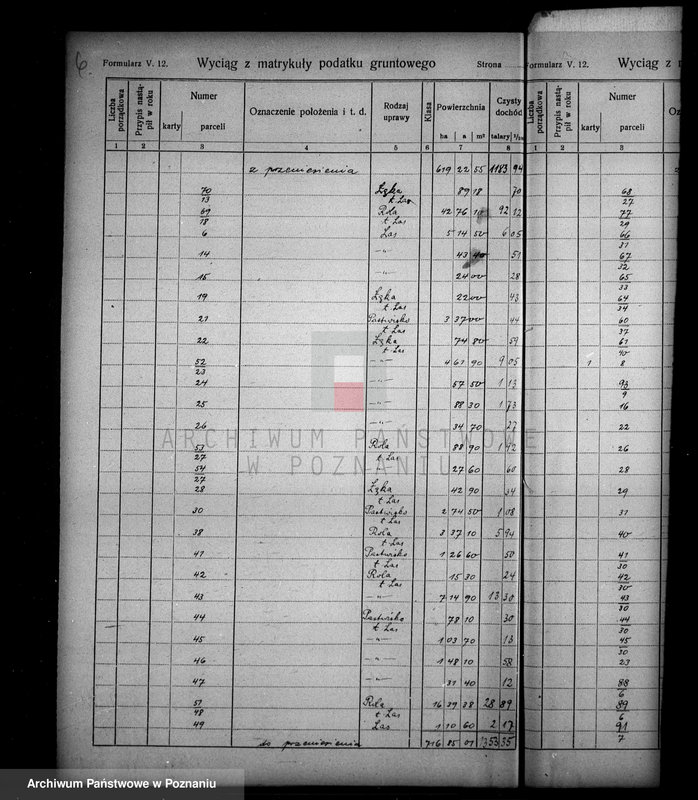 6
Formularz V. 12. Wyciąg z matrykuły podatku gruntowego Strona
Liczba porządkowa Przypis nastąpił w roku Numer karty parceli Oznaczenie położenia i t. d. Rodzaj uprawy Klasa Powierzchnia ha a m² Czysty dochód talary
1 2 3 4 5 6 7 8
z przeniesienia 619 22 55 1183 94
70/13 Łąka t. Las 89 18 70
69/18 Rola t. Las 42 76 92 12
6 Las 5 14 50 6 05
14 -"- 43 40 51
15 -"- 24 00 28
19 Łąka t. Las 22 00 43
21 Pastwisko t. Las 3 37 00 44
22 Łąka t. Las 74 80 59
52/23 -"- 4 63 90 9 05
24 -"- 57 50 1 13
25 -"- 88 30 1 73
26 -"- 34 70 27
53/27 Rola t. Las 88 90 1 42
54/27 -"- 27 60 60
28 Łąka t. Las 42 90 34
30 Pastwisko t. Las 2 74 50 1 08
38 Rola t. Las 3 37 10 5 94
41 Pastwisko t. Las 1 26 60 50
42 Rola t. Las 15 30 24
43 -"- 7 14 90 13 30
44 Pastwisko t. Las 78 10 30
45 -"- 1 03 70 13
46 -"- 1 48 10 58
47 -"- 31 40 12
51/48 Rola t. Las 16 39 38 28 89
49 Las 1 10 60 2 17
do przeniesienia 716 85 01 1353 35
Formularz V. 12. Wyciąg z
Liczba porządkowa Przypis nastąpił w roku Numer karty parceli
1 2 3
68/27
77/29
66/31
67/32
65/33
64/34
60/37
61/40
1 8
93/9
16
22
26
28
29
31
40
41/30
42/30
43/30
44/30
45/30
23
88/6
89/6
91/7
ARCHIWUM PAŃSTWOWE
W POZNANIU
Archiwum Państwowe w Poznaniu